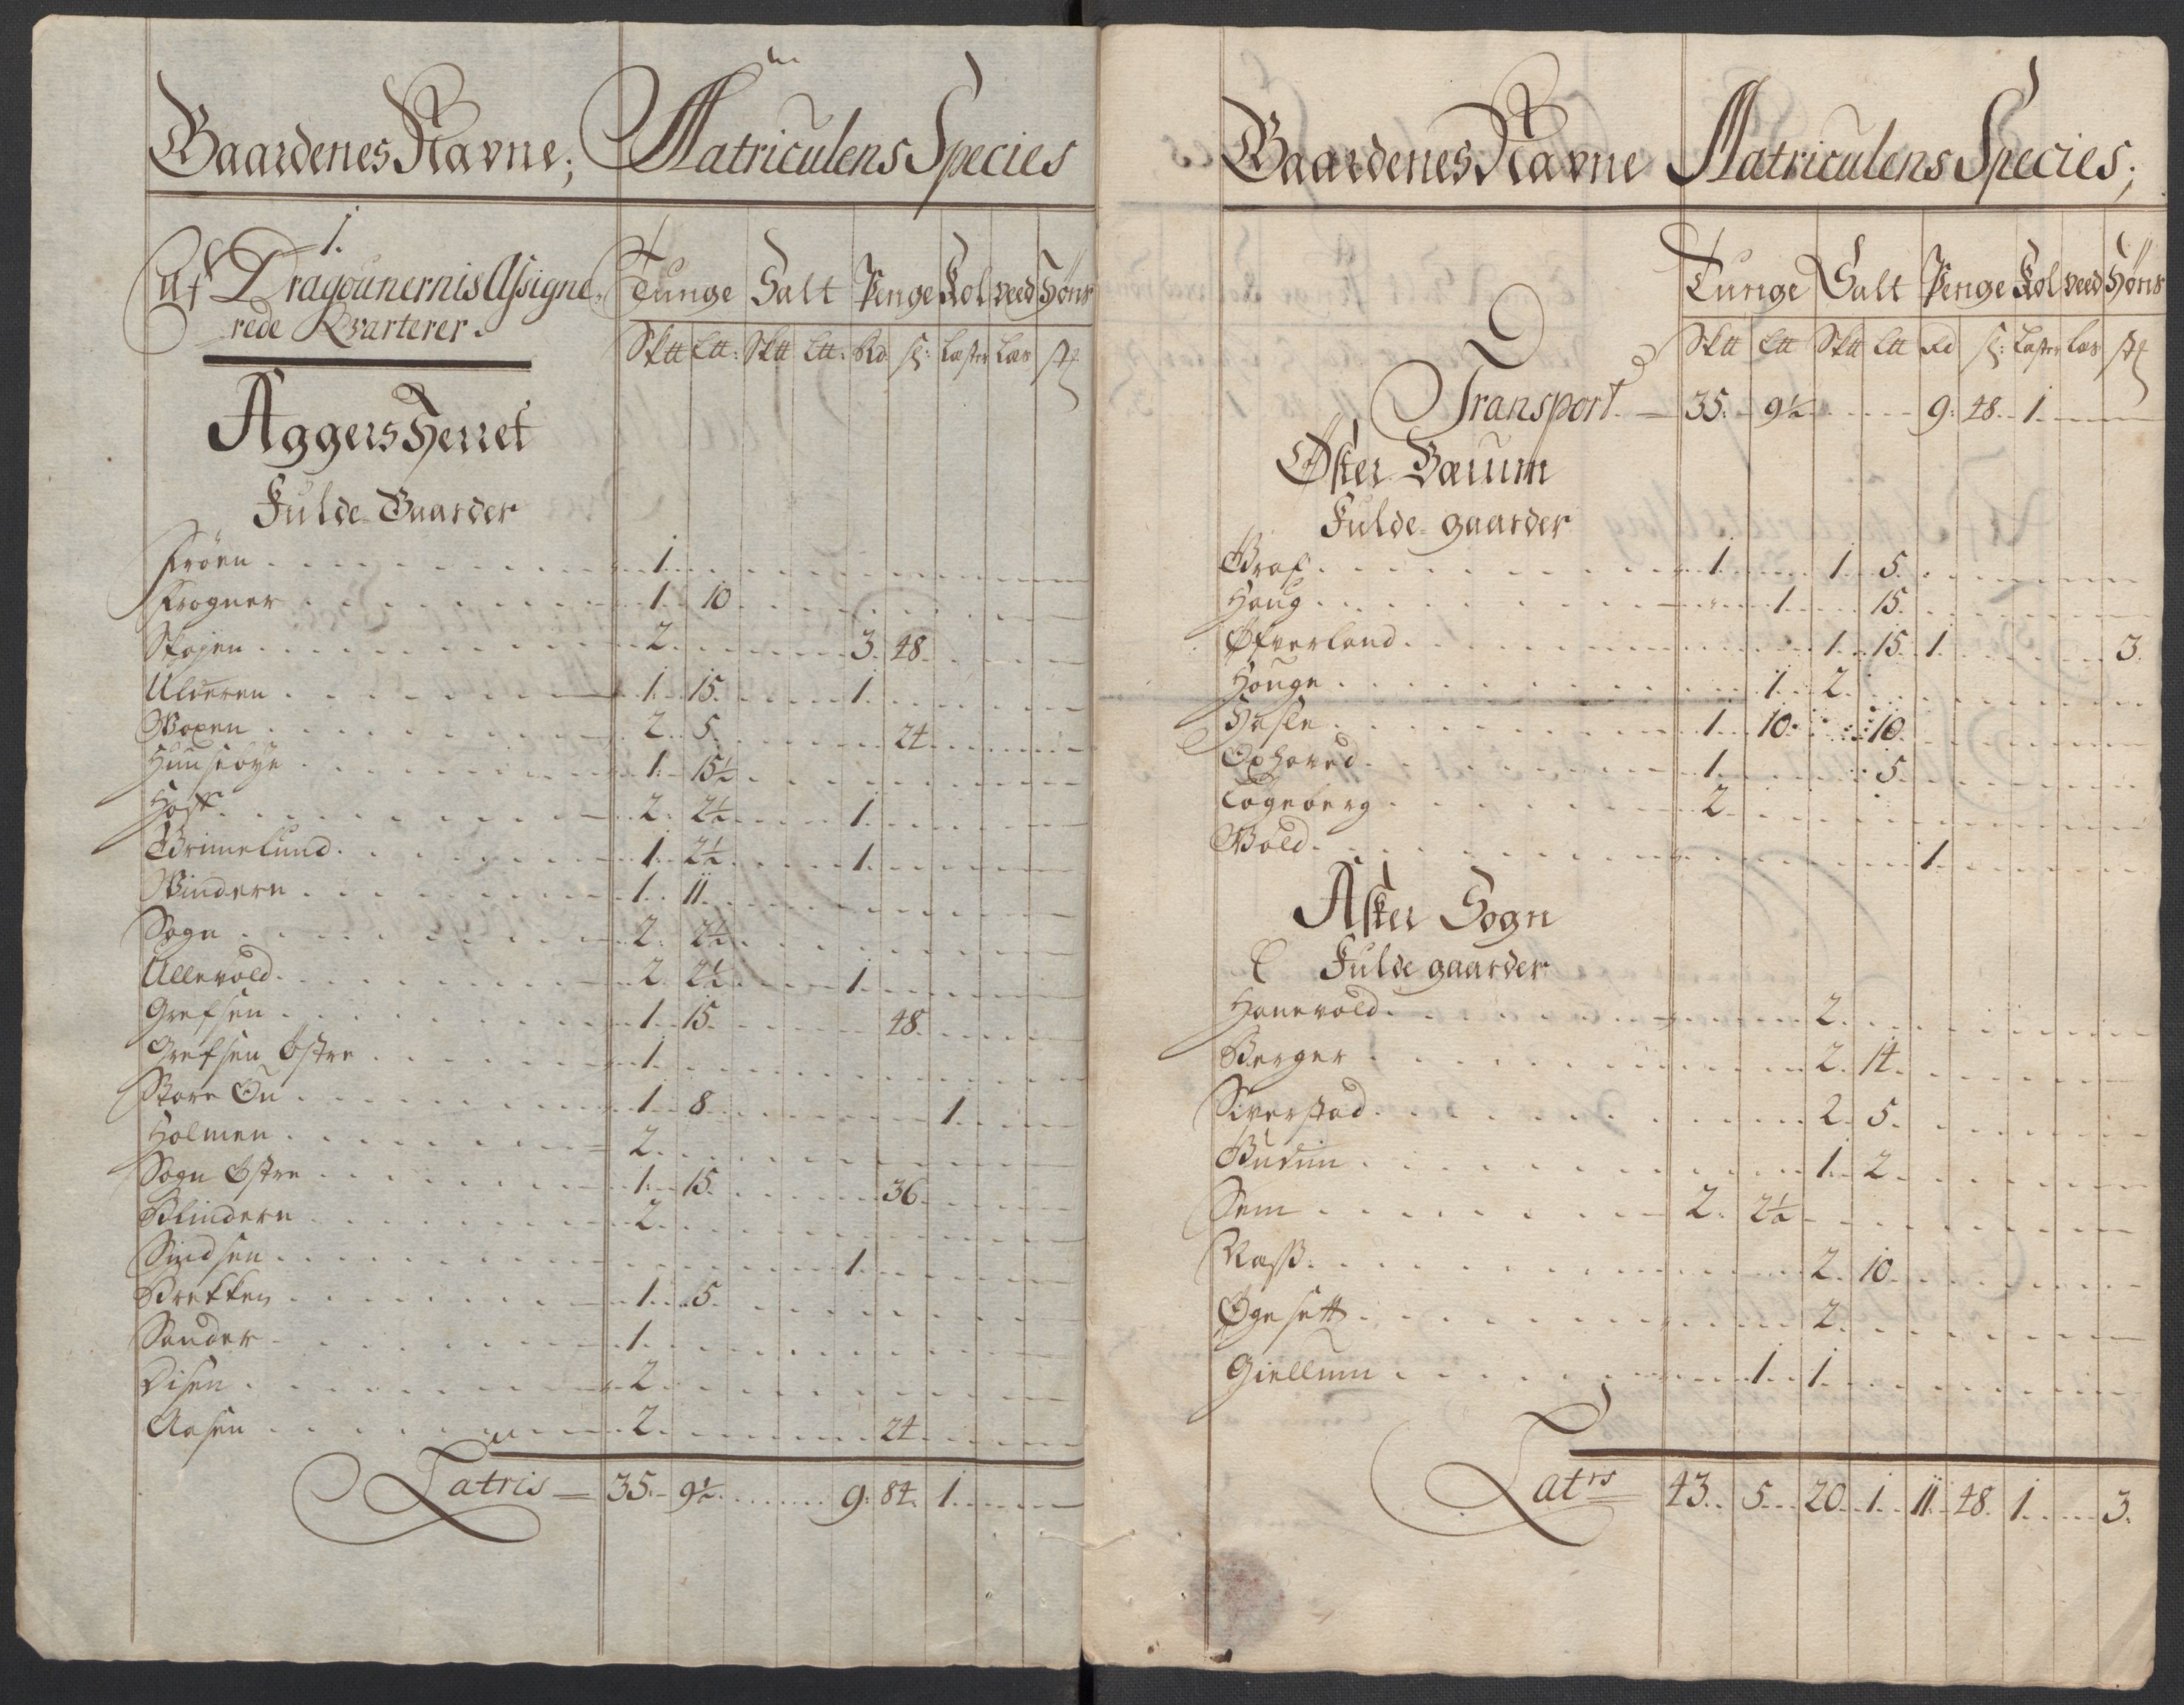 Gaardenes Navne; Matriculens Species
1.
Af Dragounernis Assigne-
rede Qvarterer.
Tunge Salt Penge Kol Veed Høns
Sktt Ltt: Sktt Ltt: Rd s: Læster Læs
Aggers Herret
Fulde Gaarder
Fröen 1.
Frogner 1. 10
Skøjen 2. 3. 48.
Ulderen 1. 15. 1.
Woxen 2. 5. 24.
Huusebye 1. 15½
Hoff 2. 2½ 1.
Grimelund 1. 2½ 1.
Windern 1. 11.
Sogn 2. 2½
Ullevold 2. 2½ 1.
Grefsen 1. 15. 48.
Grefsen Östre 1.
Store Ön 1. 8. 1.
Holmen 2.
Sogn Östre 1. 15. 36.
Blindern 2.
Sindsen 1.
Brekken 1. 5.
Sander 1.
Disen 2.
Aasen 2. 24.
Latris 35. 9½ 9. 84. 1.
Gaardenes Navne Matriculens Species;
Tunge Salt Penge Kol Veed Høns
Sktt Ltt Sktt Ltt Rd s: Læster Læs
Transport 35. 9½ 9. 48. 1.
Øster Bærum
Fulde gaarder
Graf 1. 1. 5.
Haug 1. 15.
Øfverland 1. 15. 1. 3.
Houge 1. 2.
Hasle 1. 10. 10.
Oxhoved 1. 5.
Løgeberg 2.
Wold 1.
Asker Sogn
Fulde gaarder
Hanevold 2.
Berger 2. 14.
Siverstad 2. 5.
Gudim 1. 2.
Sem 2. 2½
Næss 2. 10.
Øgesett 2.
Giellum 1. 1.
Latrs 43. 5. 20. 1. 11. 48. 1. 3.